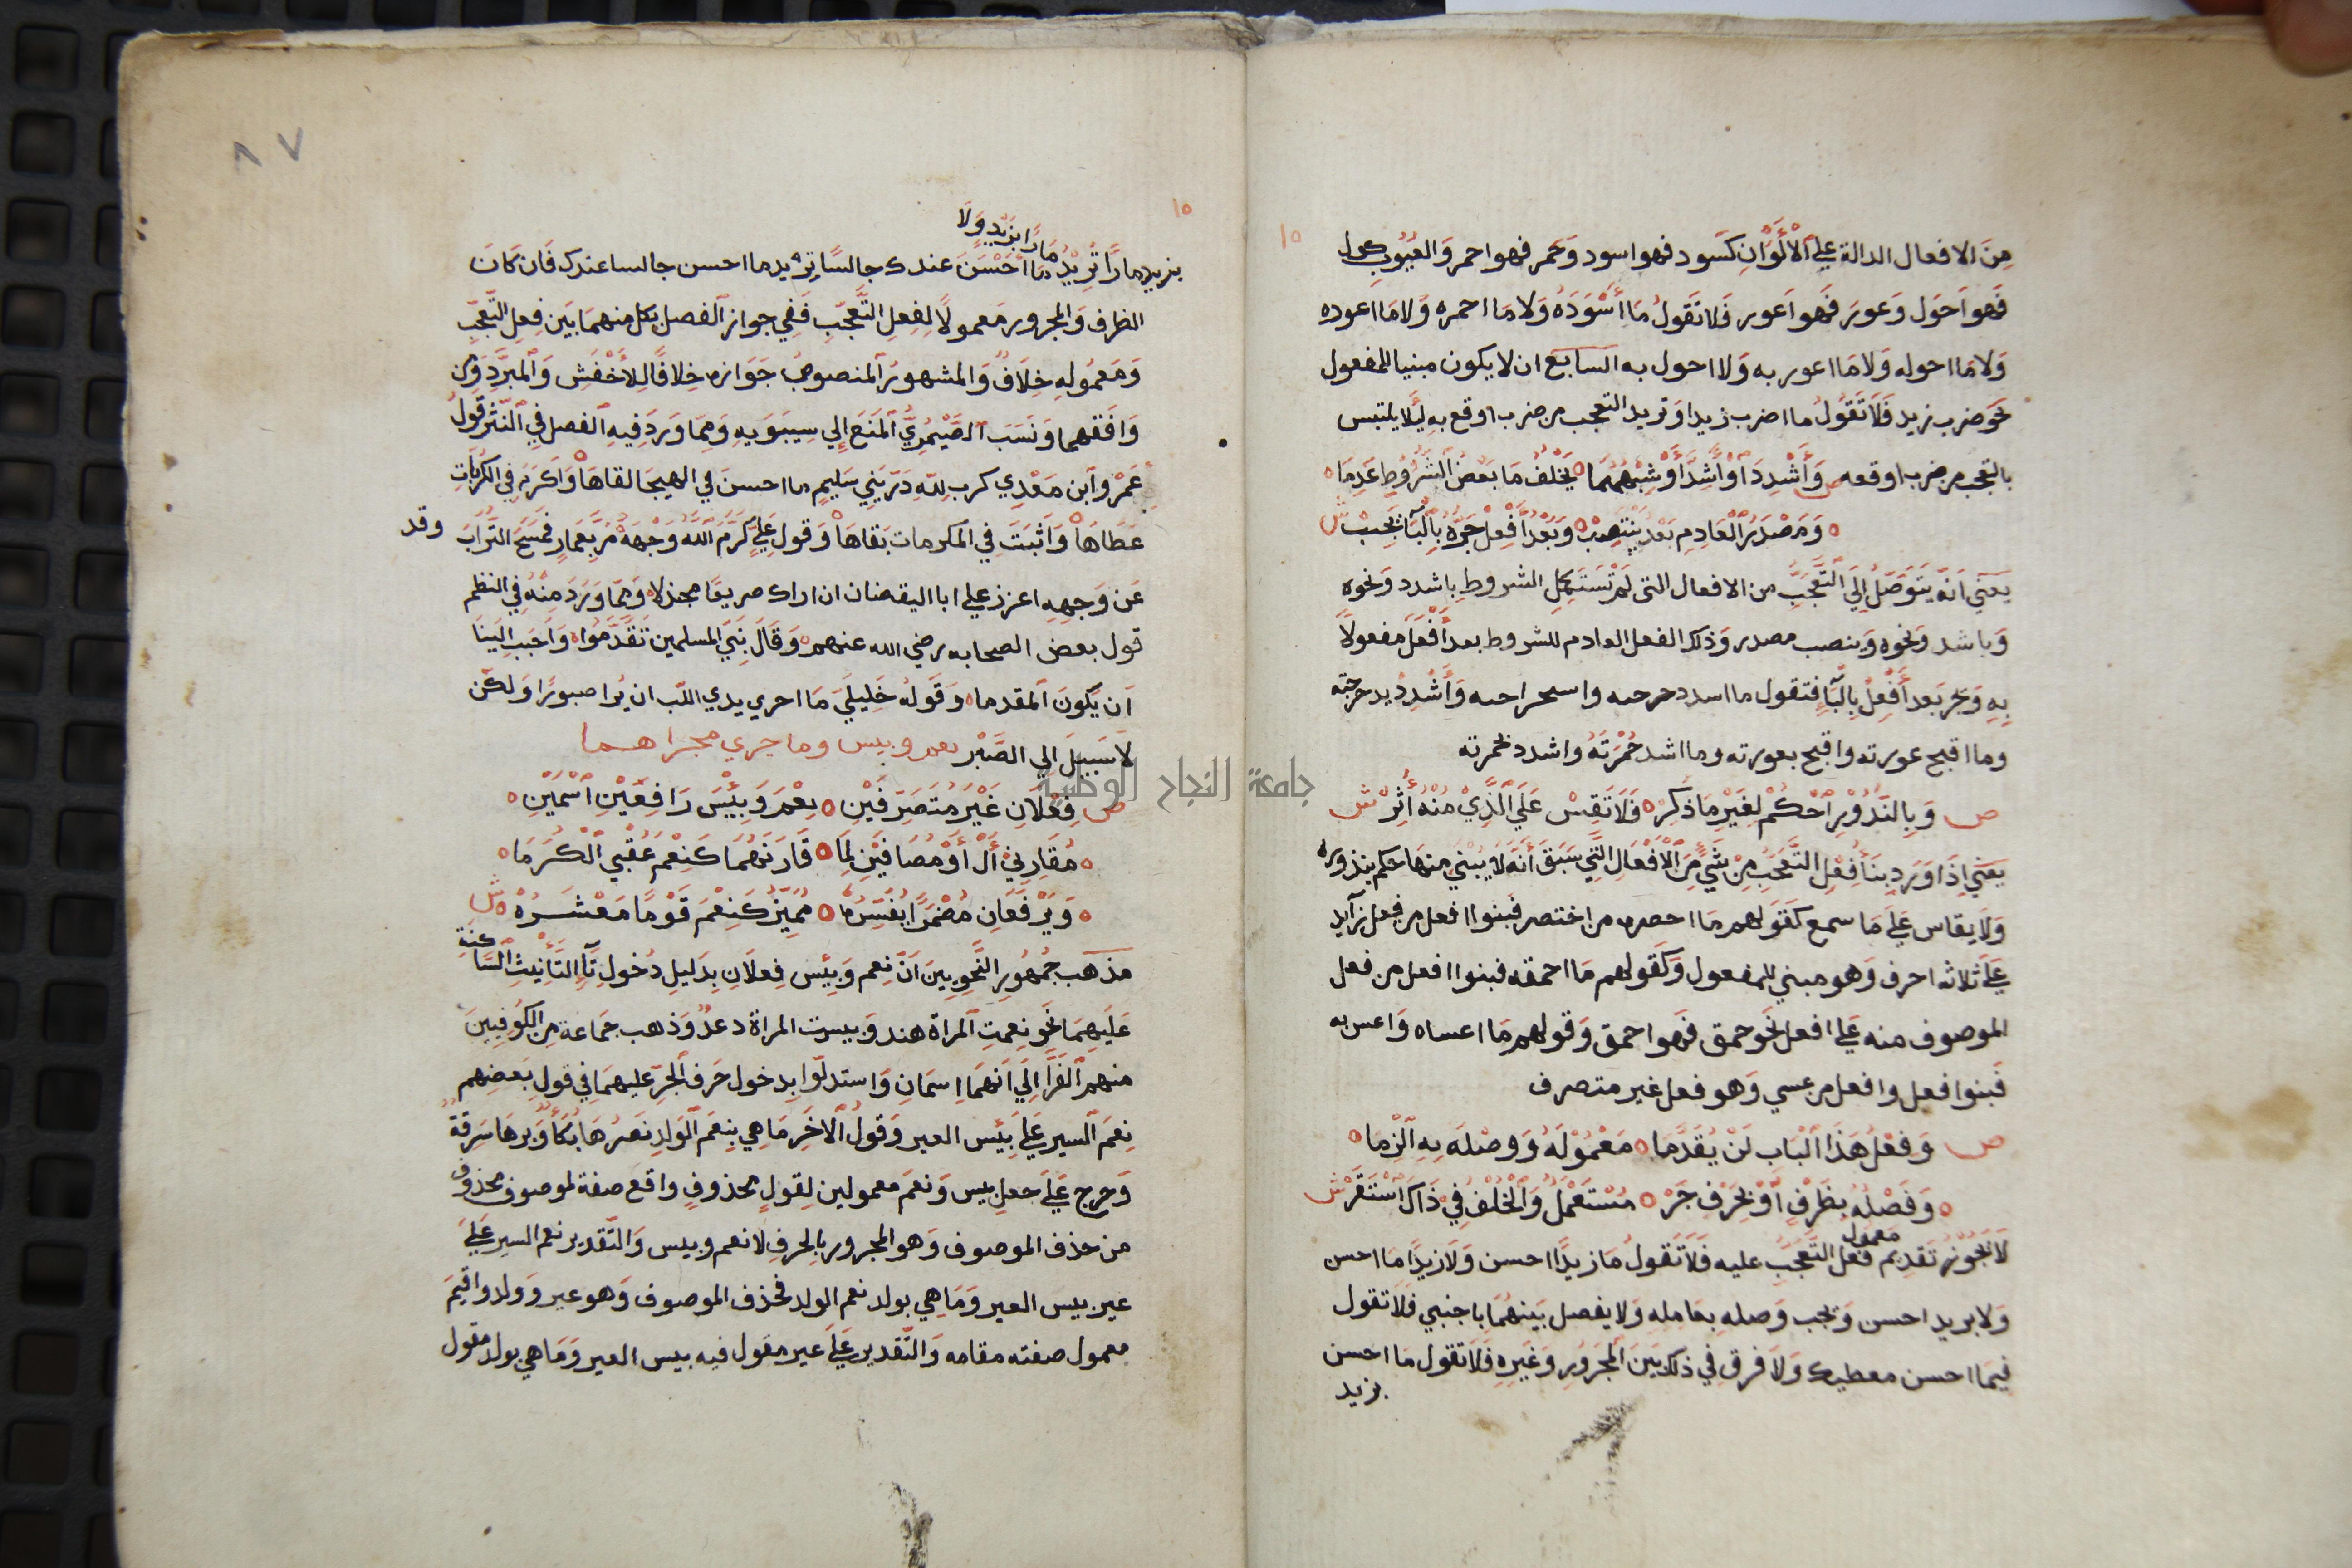 من الافعال الدالة علي الألْوَانِ كَسَود فهو اسود وَحمر فهو احمر وَالعُيُوبِ كحول
فَهو اَحوَل وَعورَ فَهو اَعور فَلا تَقولُ مَا أَسْوَدَهُ وَلا مَا احمره وَلا مَا اعوره
وَلا مَا احوله وَلا مَا اعور به وَلا احول به السابع ان لا يكون مبنيا للمفعول
نحو ضرب زيد فَلَا تَقُولُ ما اضرب زيدا وَتريد التعجب من ضرب اوقع بهِ لِئَلا يلتبس
بالتعجب من ضرب اوقعه ص وَأَشْدِدَ اوْ أَشَدَّ أَوْ شِبْهُهُمَا يَخْلُفُ مَا بَعْضُ الشُّرُوطِ عَدِمَا
وَمَصْدَرُ الْعَادِمِ بَعْدُ يَنْتَصِبْ وَبَعْدَ أَفْعِلْ جَرُّهُ بِالْبَا يَجِبْ ش
يَعني اَنّه يَتَوَصَّلُ اِلَى التَّعَجُّبِ من الافعال التى لَمْ تَسْتَكمِلِ الشروطِ باشدد وَنحوه
وَباشد وَنحوه وَينصب مصدر وَذلك الفعل العادم للشروط بعد أَفْعَلَ مفعولاً
بِهِ وَيجر بعد أَفْعِلْ بِالْبَاءِ فتقول ما اشدد دحرجته واستخراجه وَأَشْدِدْ بدحرجته
وما اقبح عورته واقبح بعورته وما اشد حُمْرَتَهُ واشدد بحمرته
ص وَبِالنُّدُوْرِ احْكُمْ لِغَيْرِ مَا ذُكِرْ وَلَا تَقِسْ عَلَي الَّذِيْ مِنْهُ أُثِرْ ش
يَعني اِذَا وَرَد بِنَا أَفْعِلِ التَّعَجُّبِ مِنْ شَيٍ مِّنَ الْأَفْعَالِ التِّي سَبَقَ أَنَّهَ لَا يُبْنيِ منهَا حكم بندوره
وَلَا يقاس عَلَي مَا سمع كَقَولهم مَا اخصره من اختصر فبنوا افعل من فعل زآيد
عَلَي ثلاثه احرف وَهو مبني للمفعول وَكَقولهم مَا احمقه فبنوا افعل من فعل
الموصوف منه عَلي افعل نحو حمق فَهو احمق وَقولهم مَا اعساه وَاعس به
فَبنوا افعل وافعل من عسي وَهو فعل غير متصرف
ص وَفِعْلُ هَذَا الْبَابِ لَنْ يُقَدَّمَا مَعْمُوْلُهُ وَوَصْلَه بِهِ الْزِمَا
وَفَصْلُهُ بِظَرْفٍ اَوْ بِحَرْفِ جَرّْ مُسْتَعْمَلٌ وَالْخُلْفُ فِيْ ذَاكَ اسْتَقَرّْ ش
لَا يَجُوْزُ تَقَدِيم معمول فعل التَّعَجُّبِ عليه فَلَا تَقولُ مَا زيدًا احسن وَلَا زيدًا مَا احسن
وَلا بزيد احسن وَيجب وَصله بعَامله وَلا يفصل بَينهُمَا باجنبي فلا تقول
فيمَا احسن معطيك وَلَا فرق فِي ذلك بَينَ المجرورِ وَغيرِهِ فَلا تَقول مَا احسن
بزيد
٨٧
بزيد مارًا تُرِيْدُ مَا أَحْسَنَ مَارًا بزَيد وَلا عندك جالسًا تريد ما احسن جالسا عندك فَان كَانَ
الظرف وَالمجرور مَعمولًا لِفِعلِ التَّعَجُّبِ فَفي جواز الفصلِ بكل منهمَا بَين فِعلِ التَّعَجُّبِ
وَمَعمُولِهِ خِلَافٌ وَالمشهورُ المنصوصُ جَوَازه خِلافًا لِلأَخْفَشِ وَالمبرَّدِ وَمن
وَافقهما وَنسَبَ الصَّيْمُرِيُّ المنعَ اِلي سِيبَوَيهِ وَمِمّا وَرَدَ فِيهِ الفصل في النَّثرِ قَولُ
عَمْرِو ابن مَعْدِي كرب لِلّهِ دَرّ بَنِي سَليمٍ ما احسنَ في الهيجا لقاهَا وَاَكرَمَ في الكربَاتِ
عَطَاهَا وَاَثبَتَ في المكرمات بَقاهَا وَقول عَلِيّ كَرَّمَ اللّهُ وَجْهَهُ مُرَّ بِعَمَّارٍ فَمسَحَ التُّرَابَ وقد
عَن وَجهه اعزز علي ابا اليقضان ان اراك صريعًا مجدلا وَمِمّا وَرَدَ مِنْهُ في النظم
قول بعض الصحابه رضي الله عنهم وَقَالَ نَبيُّ المسلمين تَقَدَّمُوا وَاَحبب اِلَينَا
اَن يَّكونَ المقدما وَقَولهُ خَليليَّ مَا احري بذي اللّب ان يُّرا صبورًا وَلَكن
لا سَبيلَ اِلي الصَّبْر نعم وبيس وما جري مجراهما
ص فِعْلَانِ غَيْرُ مُتَصَرِّفَيْنِ نِعْمَ وَبِئْسَ رَافِعَيْنِ اسْمَيْنِ
مُقَارِنَيْ أَلْ أَوْ مُضَافَيْنِ لِمَا قَارَنَهُمَا كَنِعْمَ عُقْبَي الْكُرَمَا
وَيَرْفَعَانِ مُضْمَرًا يُفَسِّرُهُ مُمَيِّزٌ كَنِعْمَ قَوْمًا مَعْشَرُهْ ش
مذهَب جُمهُورِ النَّحويينَ اَنّ نِعم وَبِئس فِعلَانِ بِدَليلِ دُخولِ تَآءِ التَأْنيثِ السَّاكنة
عَلَيهِمَا نحو نِعمتِ المراة هند وَبيست المراة دعد وَذهب جَماعة من الكُوفيينَ
منهم الفَرَّا اِلَي اَنّهمَا اسمَانِ وَاستدلّوا بدخول حَرف الجرّ عليهمَا في قول بَعضِهم
نِعمَ السير عَلَي بِئس العير وَقولُ الاخَر مَا هي بِنِعَم الوَلدِ نصرُهَا بُكَاءٌ وَبرهَا سَرِقَة
وَخرج عَلَي جعل بيس وَنعم معمولين لِقولٍ محذوفٍ واقع صفة لموصوف محذوف
من حذف الموصوف وَهو المجرور بالحرف لا نعم وبيس وَالتّقدير نعم السير عَلَي
عير بيس العير وَمَا هي بولد نعم الولد فحذف الموصوف وَهو عير وَولد واقيمَ
معمول صفته مقامه وَالتّقدير عَلَي عير مقول فيه بيس العير وَمَا هي بولد مقول
جامعة النجاح الوطنية